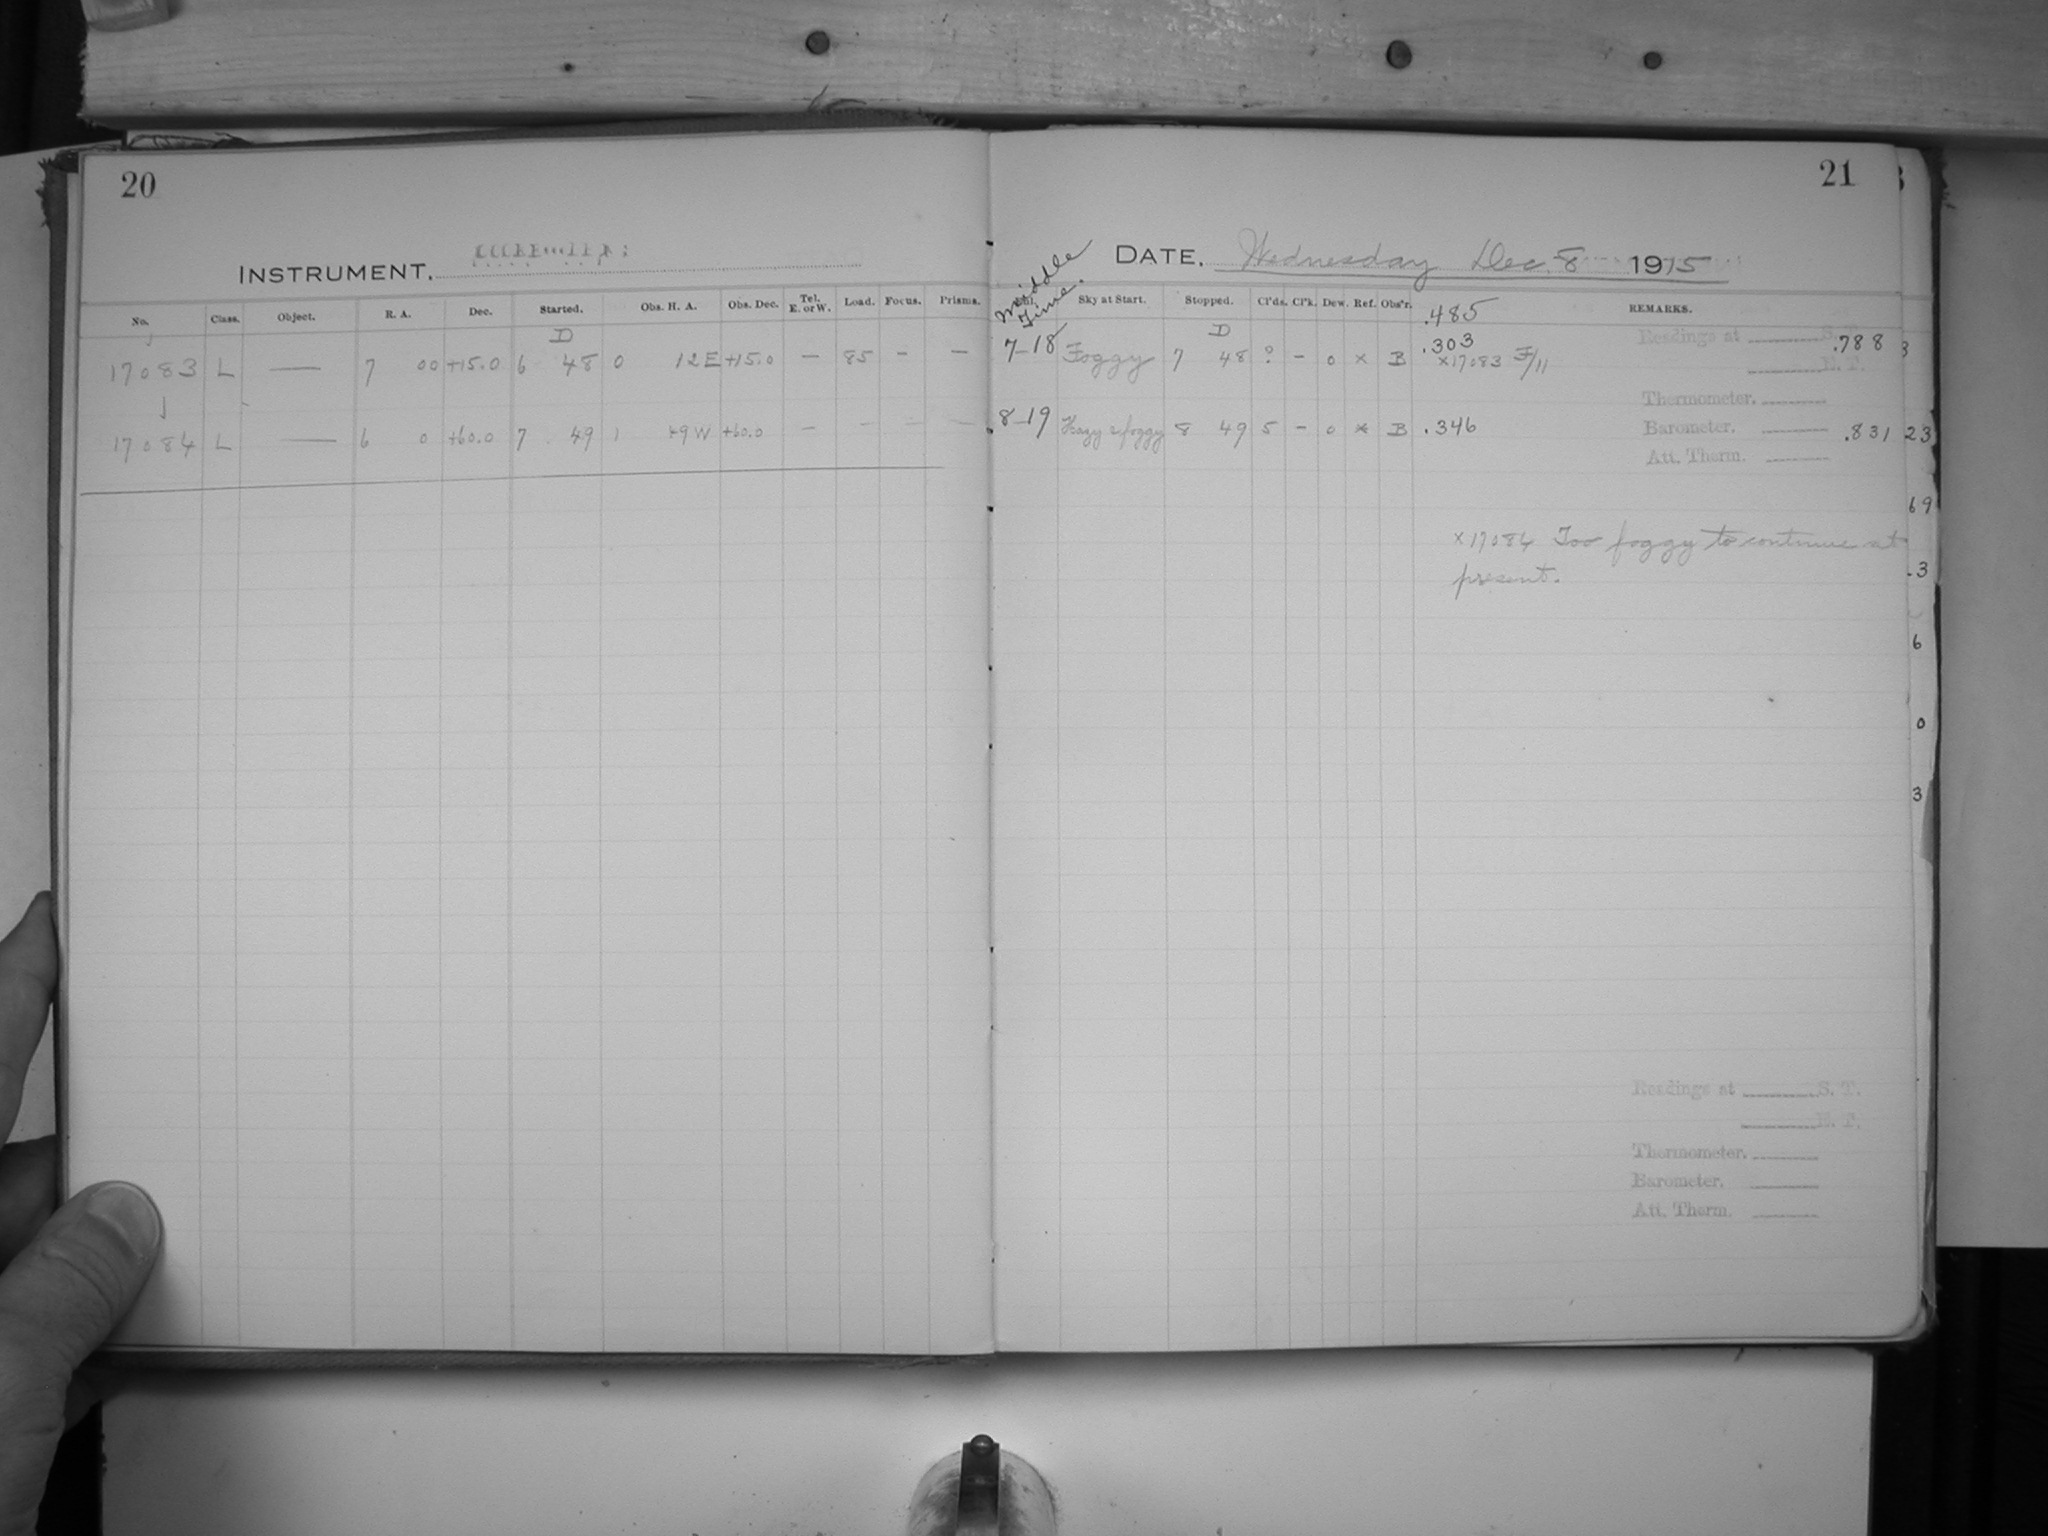 20
21
INSTRUMENT.
Middle
Time.
DATE. Wednesday Dec. 8 1915
No. Class. Object. R. A. Dec. Started. Obs. H. A. Obs. Dec. Tel. E. or W. Load. Focus. Prisms. Sky at Start. Stopped. Cl'ds. Cl'k. Dew. Ref. Obs'r. REMARKS.
.485
D D
.303 Readings at S. .788 3
17083 L — 7 00 +15.0 6 48 0 12 E +15.0 — 85 - — 7-18 Foggy 7 48 ? - 0 x B x17083 F/11 E. T.
Thermometer.
17084 L — 6 0 +60.0 7 49 1 49 W +60.0 — - - — 8-19 Hazy & foggy 8 49 5 - 0 x B .346 Barometer. .831 23
Att. Therm.
69
x17084 Too foggy to continue at
present.
.3
6
0
3
Readings at S. T.
E. T.
Thermometer.
Barometer.
Att. Therm.